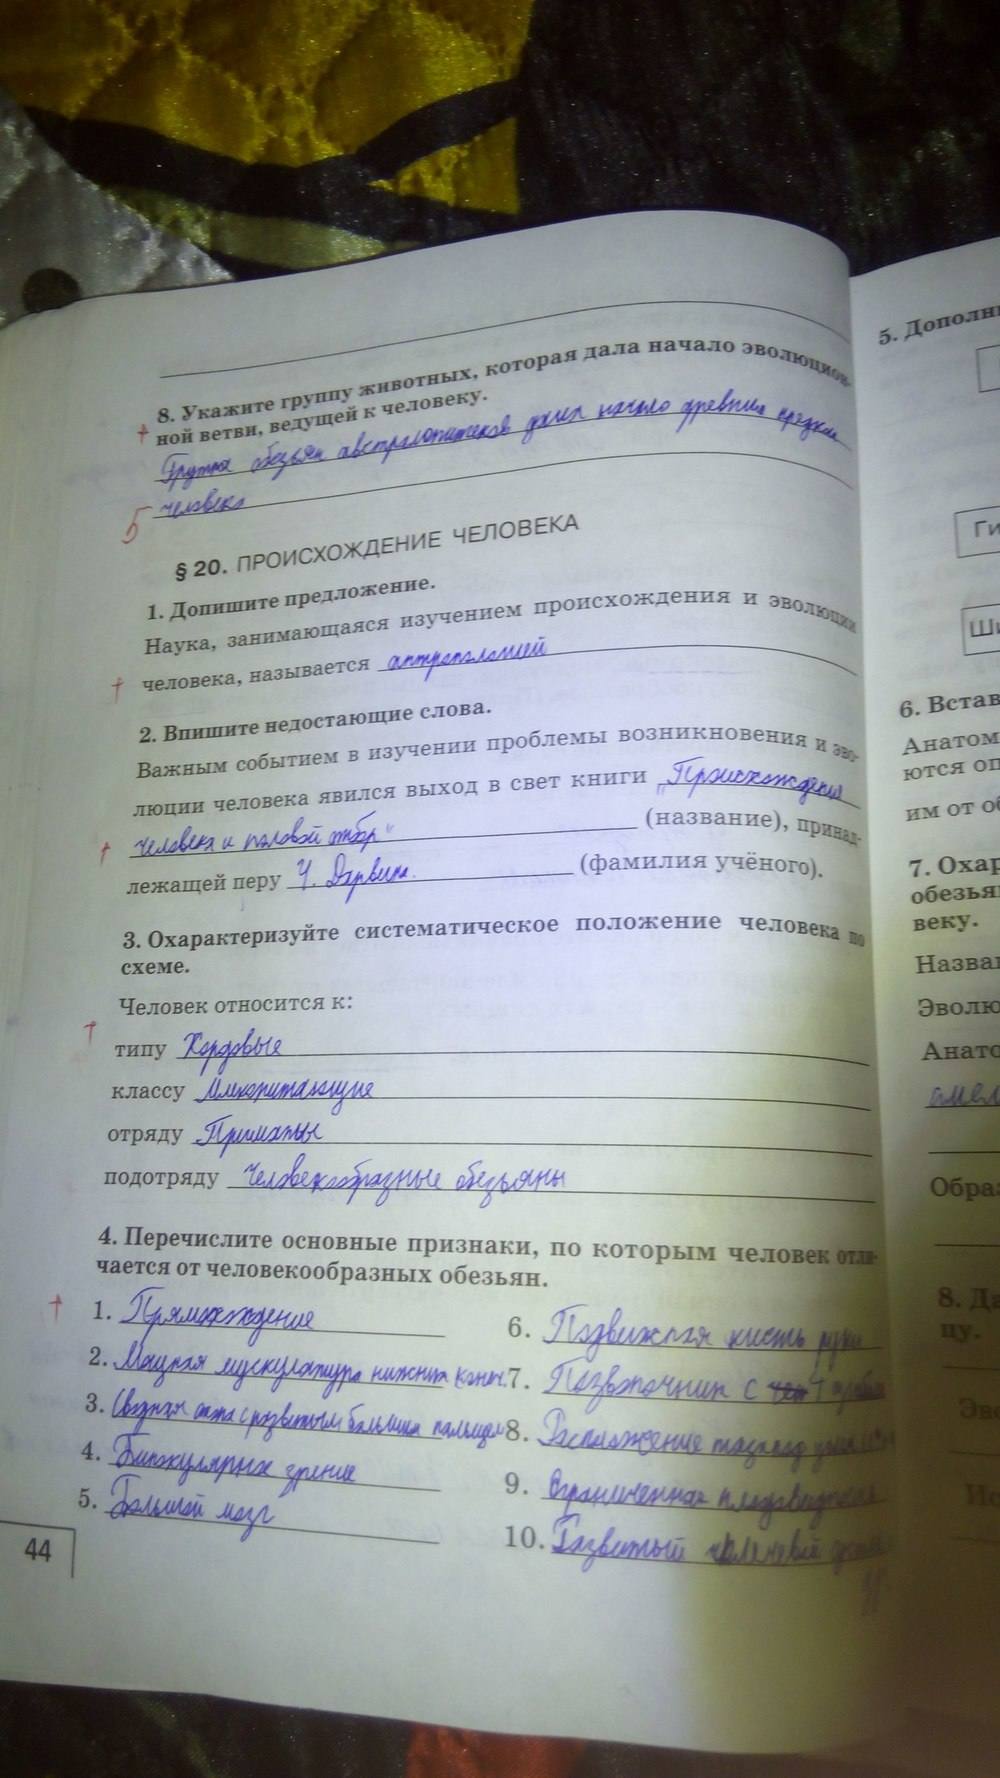 8. Укажите группу животных, которая дала начало эволюцион-
ной ветви, ведущей к человеку.
Группа обезьян австралопитеков дала начало древним предкам
человека
5
§ 20. ПРОИСХОЖДЕНИЕ ЧЕЛОВЕКА
1. Допишите предложение.
Наука, занимающаяся изучением происхождения и эволюции
человека, называется антропологией
2. Впишите недостающие слова.
Важным событием в изучении проблемы возникновения и эво-
люции человека явился выход в свет книги „Происхождение
человека и половой отбор" (название), принад-
лежащей перу Ч. Дарвина. (фамилия учёного).
3. Охарактеризуйте систематическое положение человека по
схеме.
Человек относится к:
типу Хордовые
классу Млекопитающие
отряду Приматы
подотряду Человекообразные обезьяны
4. Перечислите основные признаки, по которым человек отли-
чается от человекообразных обезьян.
1. Прямохождение
2. Мощная мускулатура нижних конеч.
3. Сводчатая стопа с развитым большим пальцем
4. Бинокулярное зрение
5. Большой мозг
6. Подвижная кисть руки
7. Позвоночник с 4
8. Расположение глаз над
9. Ограниченная плодовитость
10. Развитый
44
5. Дополни
Ги
Ши
6. Встав
Анатом
ются оп
им от об
7. Охар
обезья
веку.
Назва
Эволю
Анато
Образ
8. Да
цу.